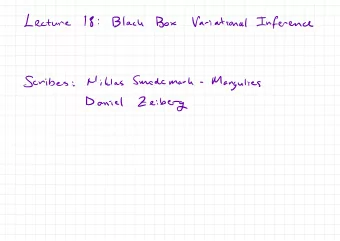 Lecture 18: Black Box Variational Inference
Scribes: Niklas Smedemark-Margulies
Daniel Zeiberg